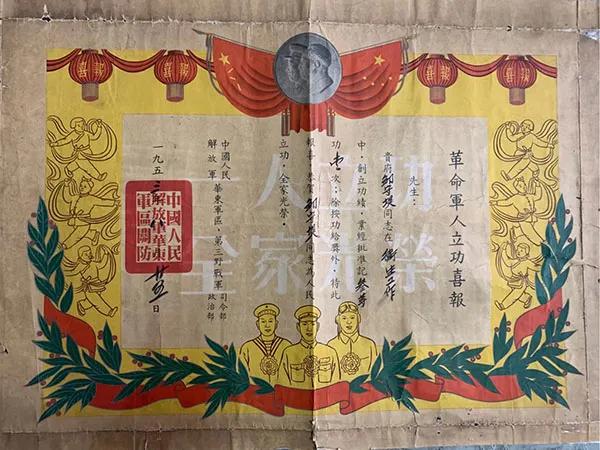 喜報
喜報
喜報
喜報
一人立功
全家光榮
革命軍人立功喜報
先生：
貴府 同志在 衛生工作
中，創立功績，業經批准記 叁等
功壹次；除按功給獎外，特此
報喜，恭賀 同志為人民
立功，全家光榮。
中國人民
解放軍 華東軍區、第三野戰軍 司令部
政治部
一九五三年 日
中國人民
解放軍華東
軍區關防